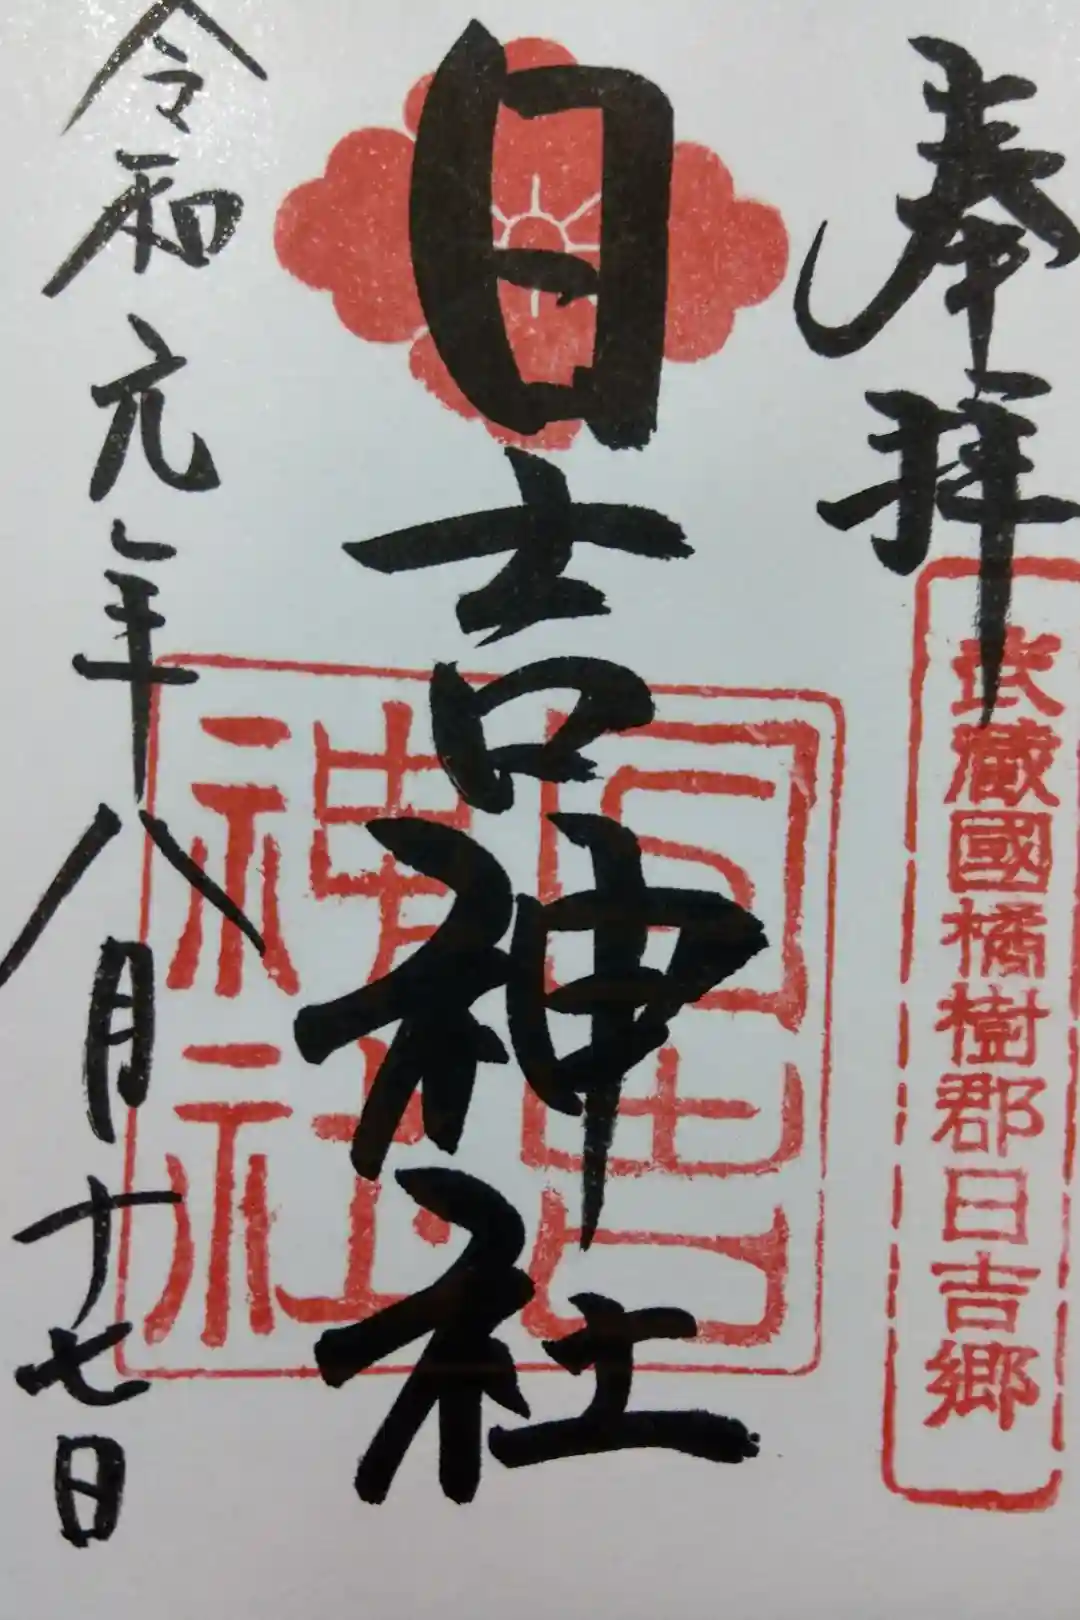 奉拝
武蔵國橘樹郡日吉郷
日吉神社
日吉
神社
令和元年八月十七日